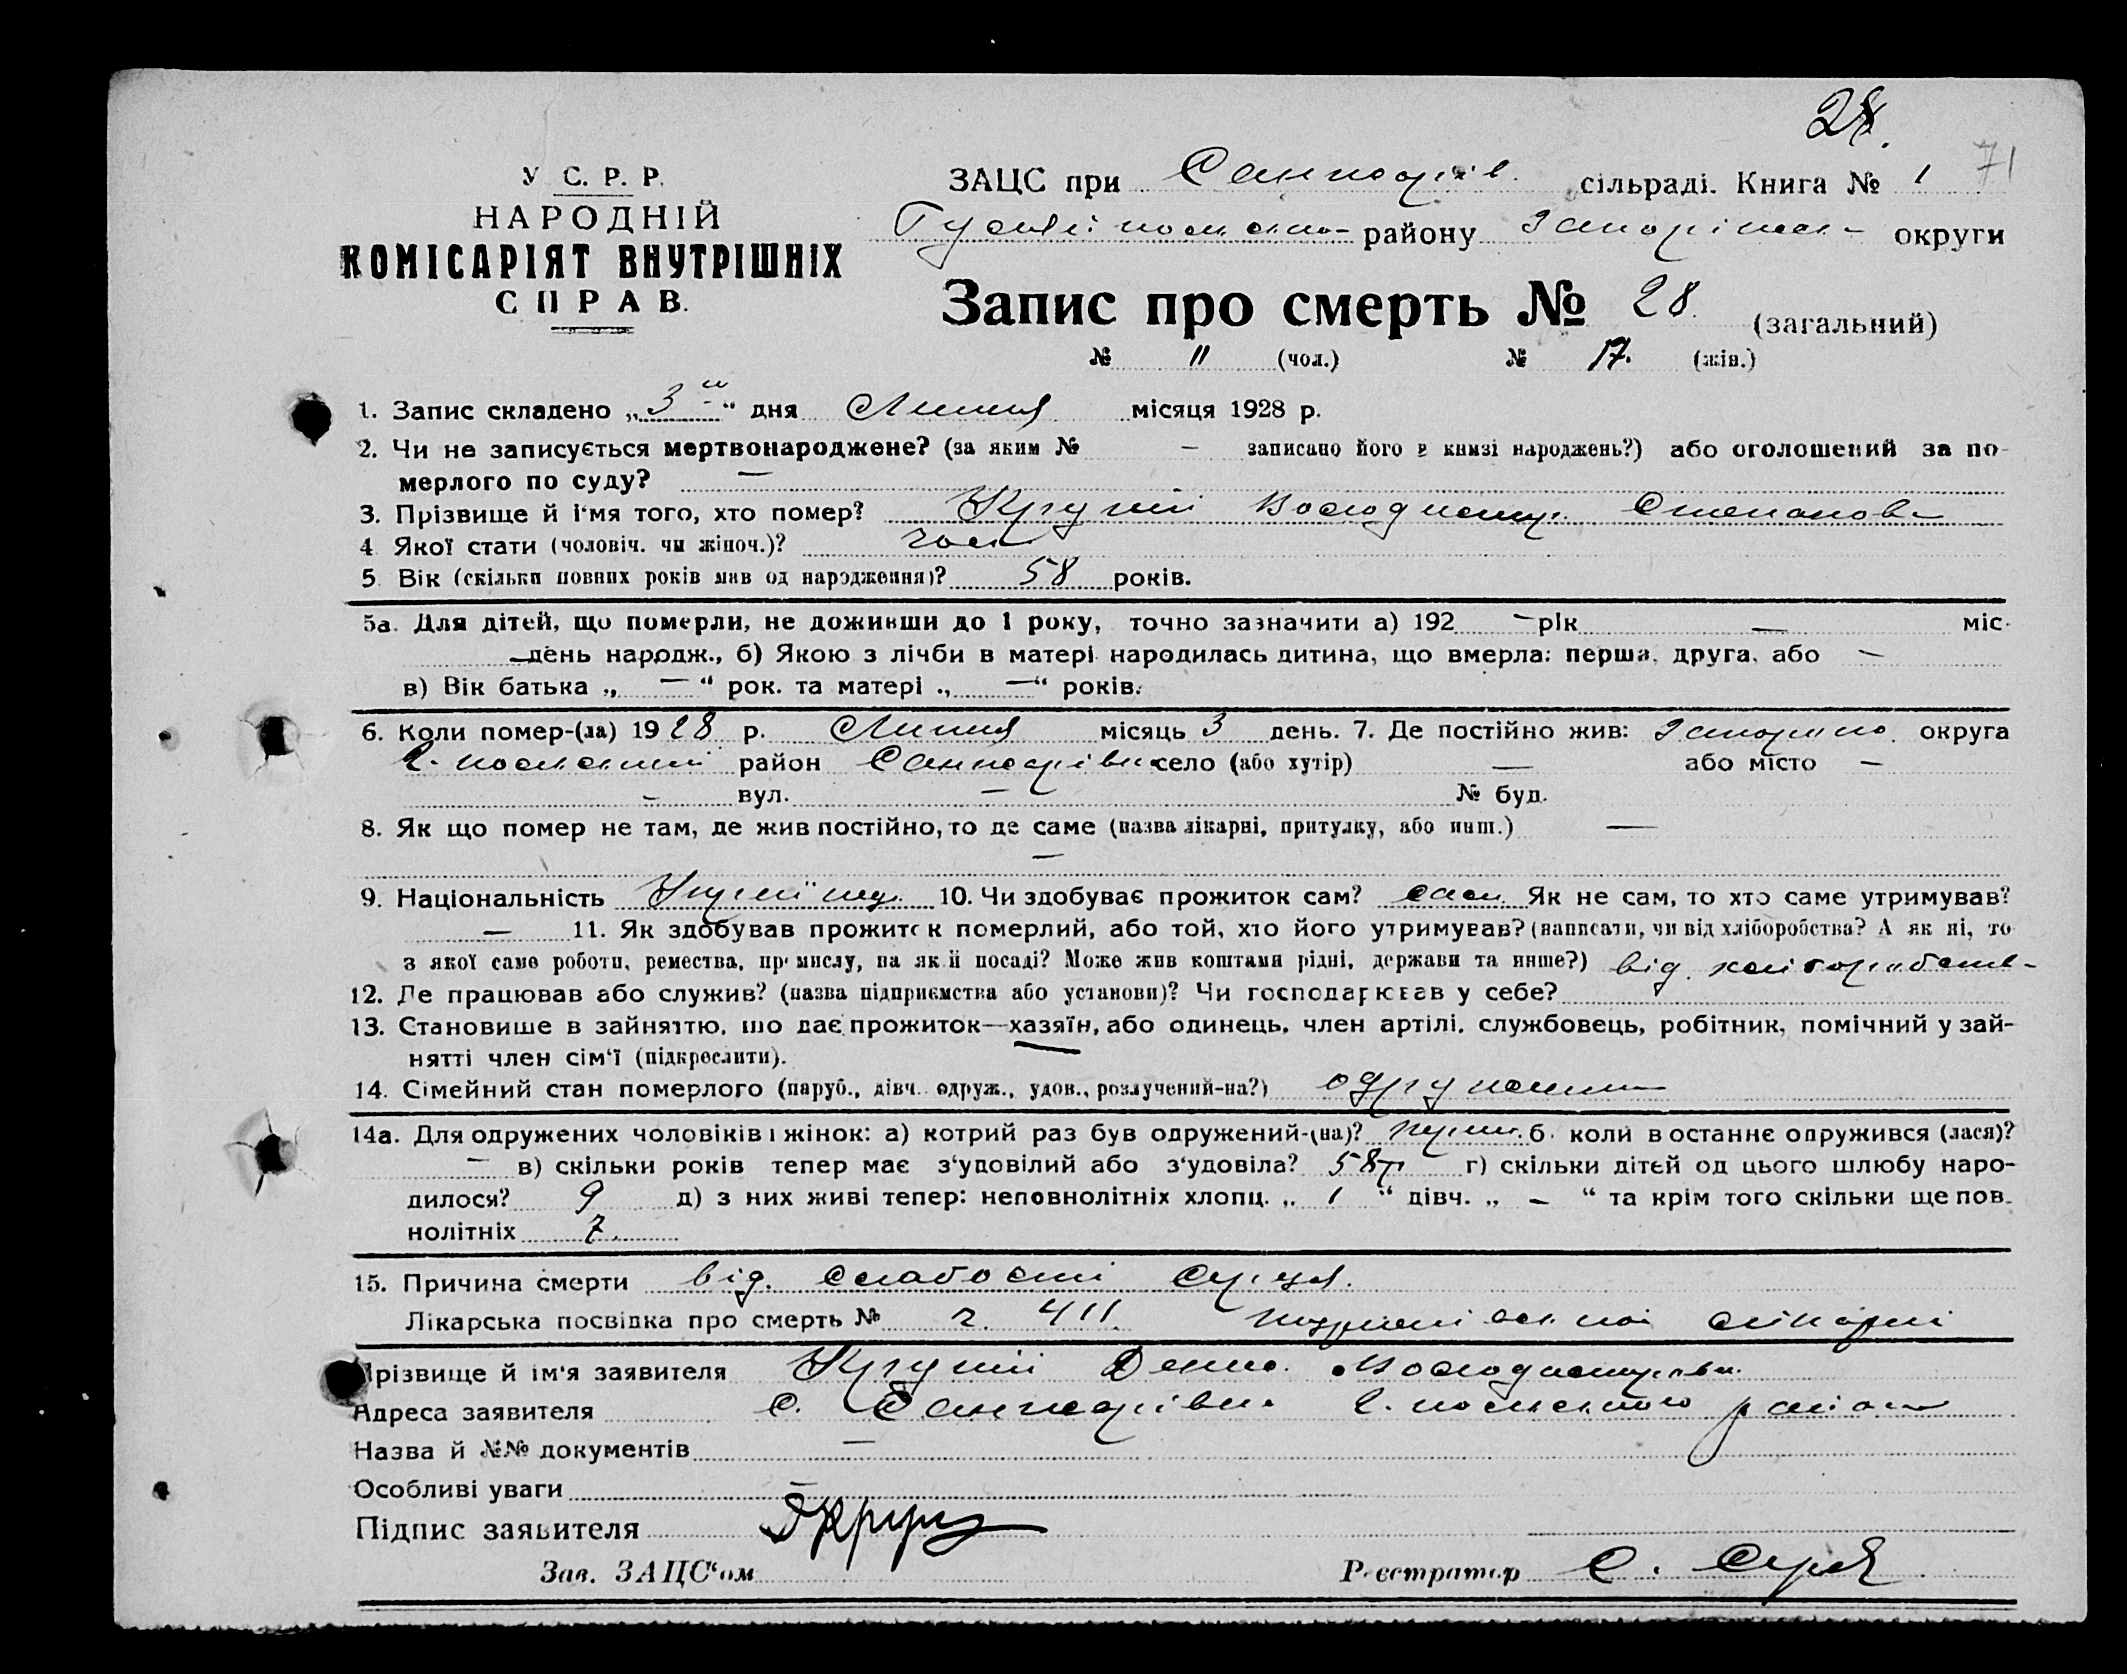 28.
71
У С. Р. Р.
НАРОДНІЙ
КОМІСАРІЯТ ВНУТРІШНІХ
СПРАВ.
ЗАЦС при Санжарів. сільраді. Книга № 1
Гуляйпольсько- району Запоріжськ- округи
Запис про смерть № 28 (загальний)
№ 11 (чол.) № 17. (жін.)
1. Запис складено „3" дня Липня місяця 1928 р.
2. Чи не записується мертвонароджене? (за яким № — записано його в книзі народжень?) або оголошений за по-
мерлого по суду? —
3. Прізвище й і'мя того, хто помер? Крутій Володимир Степанов-
4 Якої стати (чоловіч. чи жіноч.)? чол
5 Вік (скільки повних років мав од народження)? 58 років.
5а. Для дітей, що померли, не доживши до 1 року, точно зазначити а) 192 — рік — міс.
— день народж., б) Якою з лічби в матері народилась дитина, що вмерла: перша, друга, або —
в) Вік батька „ — " рок. та матері „ — " років.
6. Коли помер-(ла) 1928 р. Липня місяць 3 день. 7. Де постійно жив: округа
Г. польський район Санжарівка село (або хутір) — або місто —
— вул. — № буд.
8. Як що помер не там, де жив постійно, то де саме (назва лікарні, притулку, або инш.) —
—
9. Національність Українец. 10. Чи здобуває прожиток сам? сам. Як не сам, то хто саме утримував?
— 11. Як здобував прожиток померлий, або той, хто його утримував? (написати, чи від хліборобства? А як ні, то
з якої саме роботи, ремества, промислу, на якій посаді? Може жив коштами рідні, держави та инше?) від хліборобств-
12. Де працював або служив? (назва підприємства або установи)? Чи господарював у себе?
13. Становище в зайняттю, що дає прожиток—хазяїн, або одинець, член артілі, службовець, робітник, помічний у зай-
нятті член сім'ї (підкреслити).
14. Сімейний стан померлого (паруб., дівч. одруж., удов., розлучений-на?) одружений
14а. Для одружених чоловіків і жінок: а) котрий раз був одружений-(на)? перш. б. коли в останнє одружився (лася)?
— в) скільки років тепер має з'удовілий або з'удовіла? 58 р г) скільки дітей од цього шлюбу наро-
дилося? 9 д) з них живі тепер: неповнолітніх хлопц. „ 1 " дівч. „ — " та крім того скільки ще пов-
нолітніх 7.
15. Причина смерти від. слабості серця.
Лікарська посвідка про смерть № 411. лікарні
Прізвище й ім'я заявителя Крутій Володимирович
Адреса заявителя с. Санжарівка Г. польського район
Назва й №№ документів —
Особливі уваги —
Підпис заявителя
Зав. ЗАЦС'ом Реєстратор С.